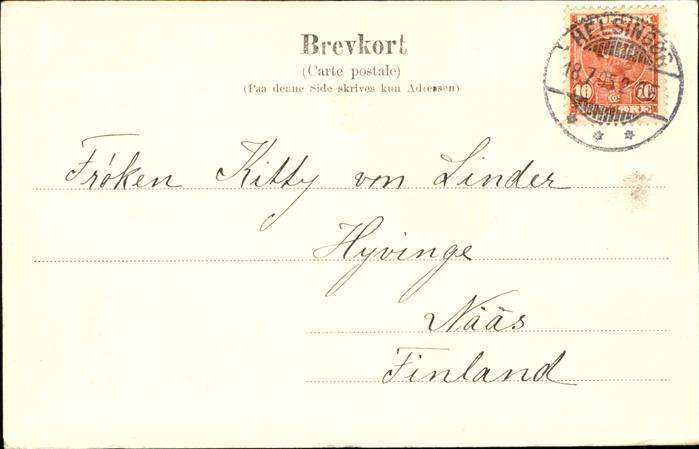 Brevkort
(Carte postale)
(Paa denne Side skrives kun Adressen)
HELSINGØR
18.7.
10 10
Fröken Kitty von Linder
Hyvinge
Nääs
Finland